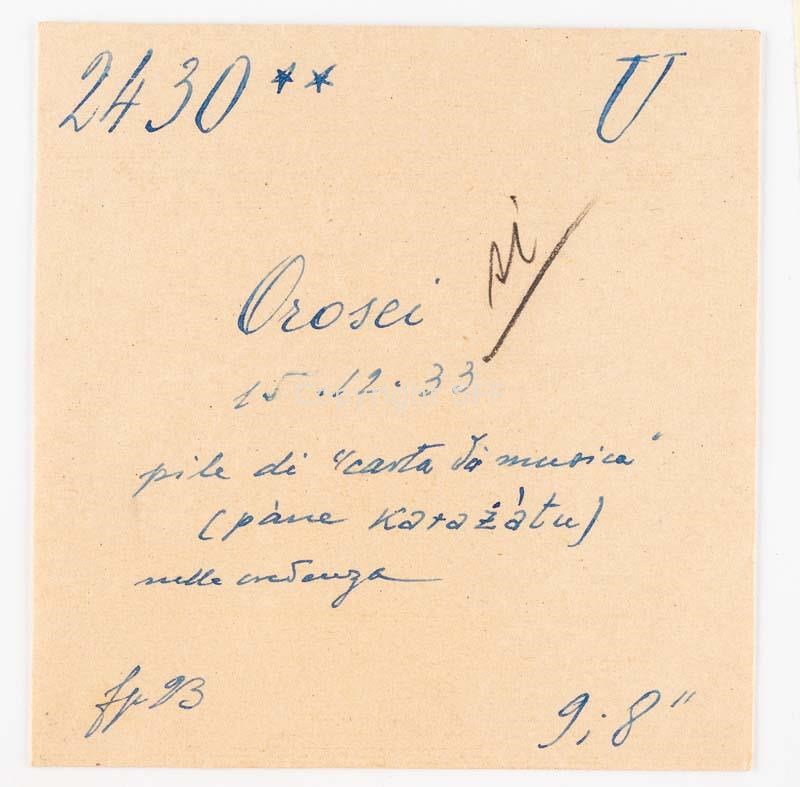 2430** U
si
Orosei
15.12.33
pile di "carta da musica"
(pàne karażàtu)
nella credenza
9; 8"